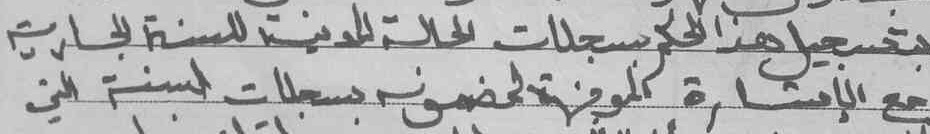 بتسجيل هذا الحكم بسجلات الحالة المدنية للسنة الجارية
مع الإشارة الموجزة لمضمونه بسجلات السنة التي